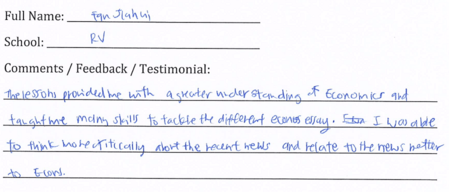 Full Name: Tan Jiahui
School: RV
Comments / Feedback / Testimonial:
The lessons provided me with a greater understanding of Economics and
taught me many skills to tackle the different econs essay. I was able
to think more critically about the recent news and relate to the news better
to Econs.